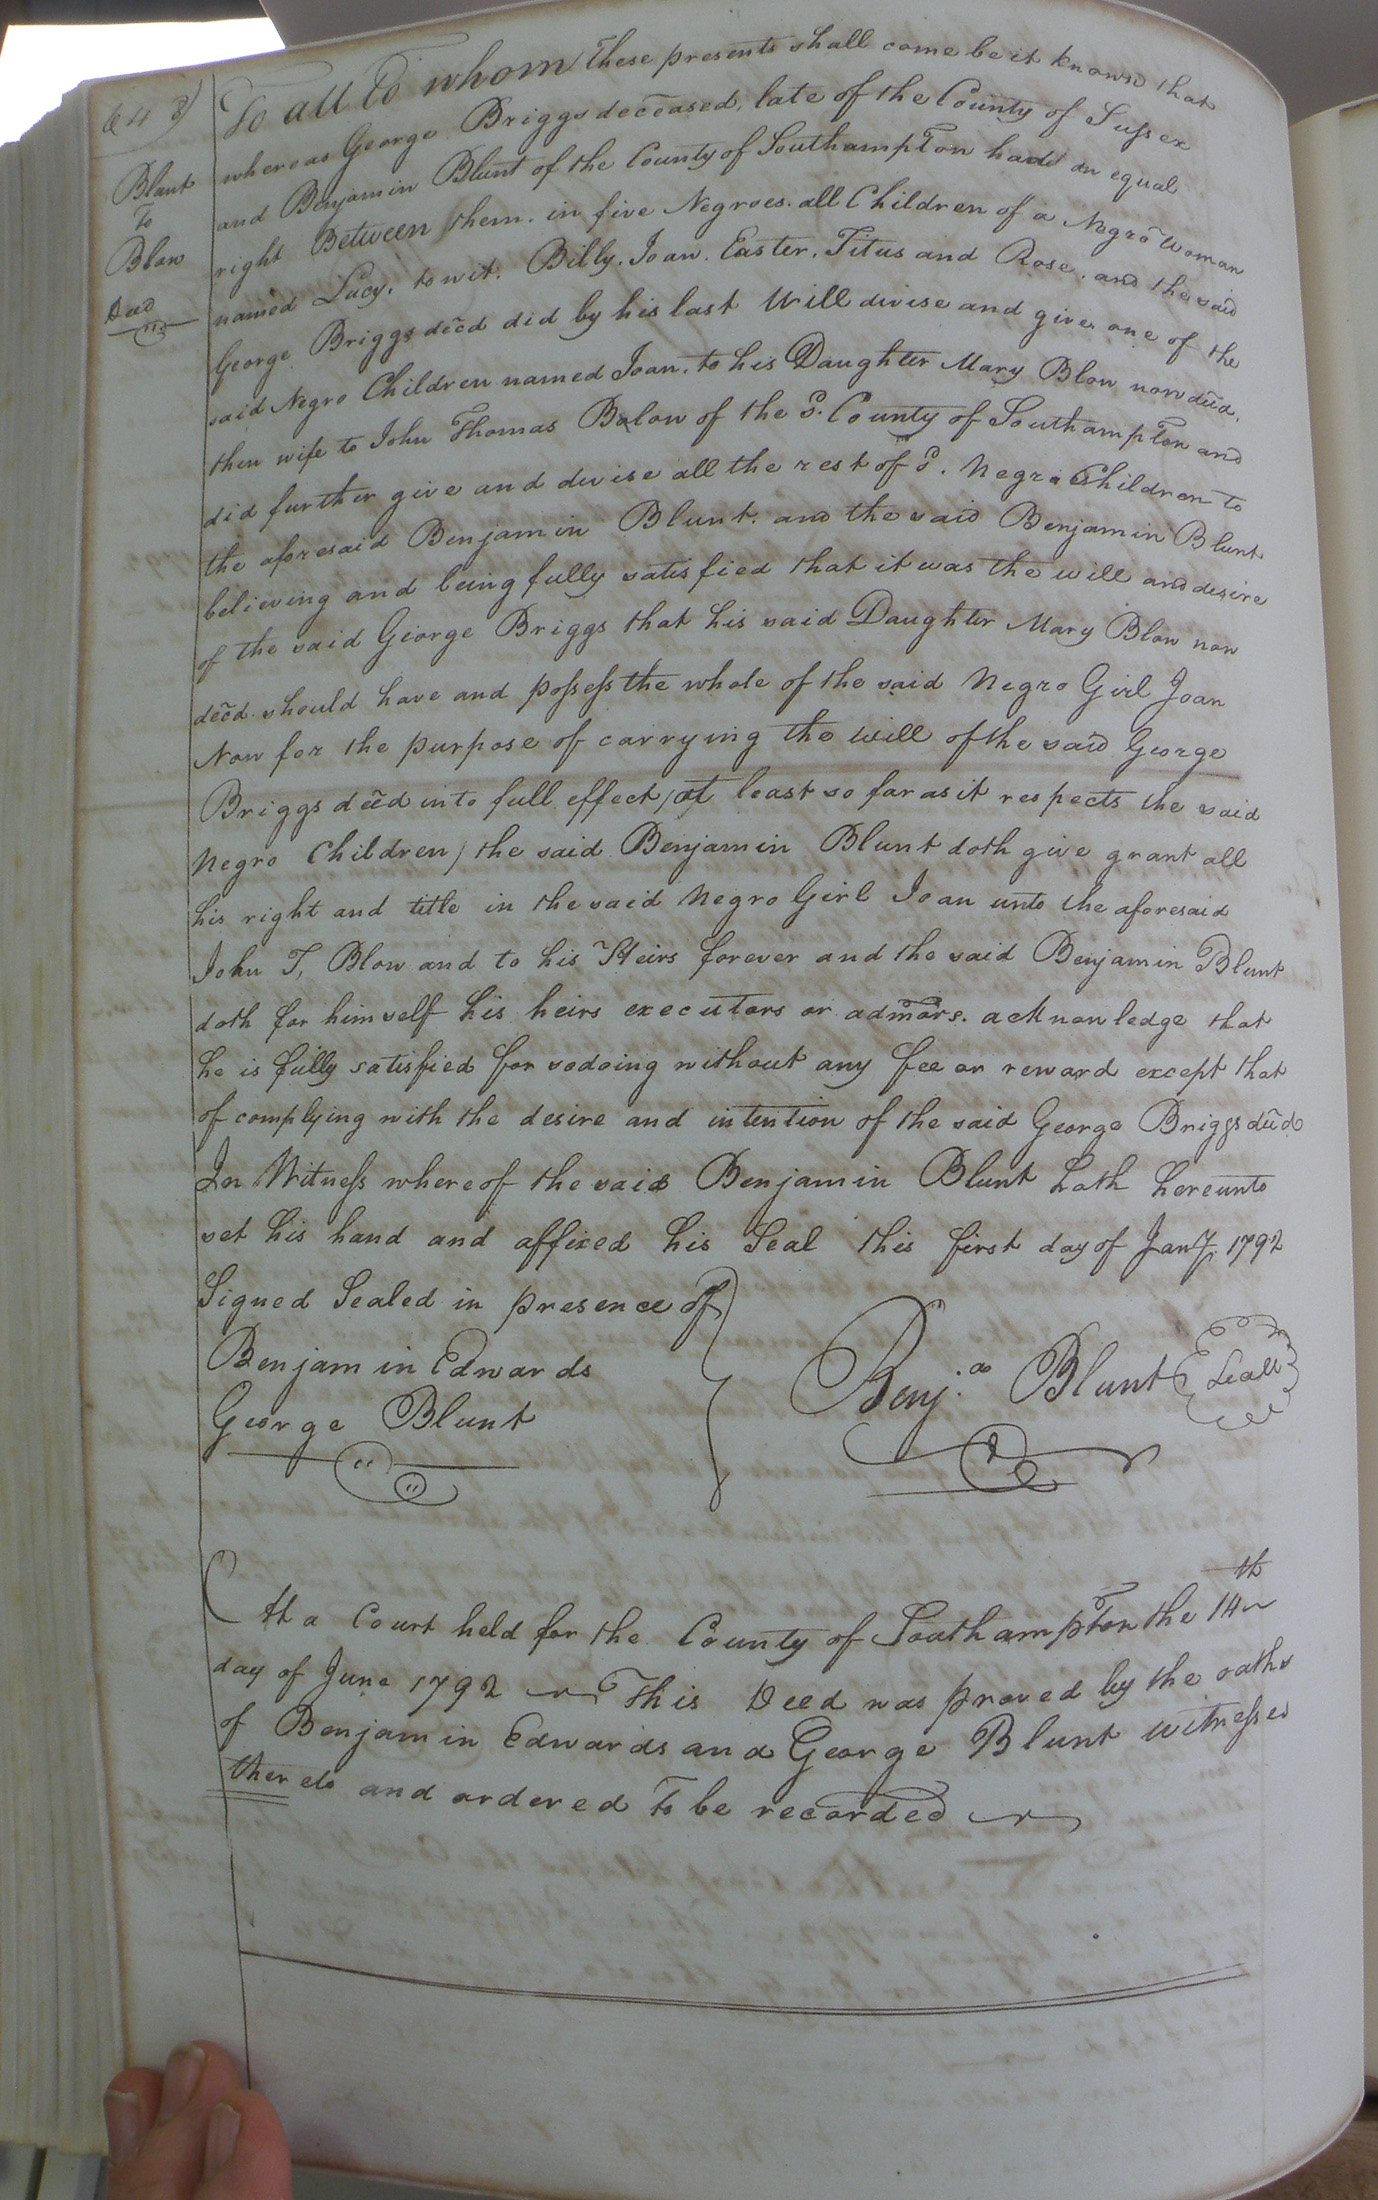 648)
Blunt
To
Blow
Deed
To all to whom these presents shall come be it known that
whereas George Briggs deceased, late of the County of Sussex
and Benjamin Blunt of the County of Southampton hade an equal
right Between them. in five Negroes. all Children of a Negro Woman
named Lucy, to wit. Billy. Joan. Easter. Titus and Rose. and the said
George Briggs decd did by his last Will divise and give one of the
said Negro Children named Joan. to his Daughter Mary Blow now decd.
then wife to John Thomas Balow of the Sd. County of Southampton and
did further give and divise all the rest of Sd. Negro Children to
the aforesaid Benjamin Blunt. and the said Benjamin Blunt
believing and being fully satisfied that it was the will and desire
of the said George Briggs that his said Daughter Mary Blow now
decd. should have and possess the whole of the said Negro Girl Joan
Now for the purpose of carrying the will of the said George
Briggs decd into full effect (at least so far as it respects the said
Negro Children) the said Benjamin Blunt doth give grant all
his right and title in the said Negro Girl Joan unto the aforesaid
John T, Blow and to his Heirs forever and the said Benjamin Blunt
doth for himself his heirs executors or admors. acknowledge that
he is fully satisfied for sodoing without any fee or reward except that
of complying with the desire and intention of the said George Briggs decd
In Witness whereof the said Benjamin Blunt hath hereunto
set his hand and affixed his Seal this first day of Jany. 1792
Signed Sealed in presence of
Benjamin Edwards
George Blunt
Benja. Blunt Seall
At a Court held for the County of Southampton the 14th
day of June 1792 This Deed was proved by the oaths
of Benjamin Edwards and George Blunt witnesses
thereto and ordered to be recorded